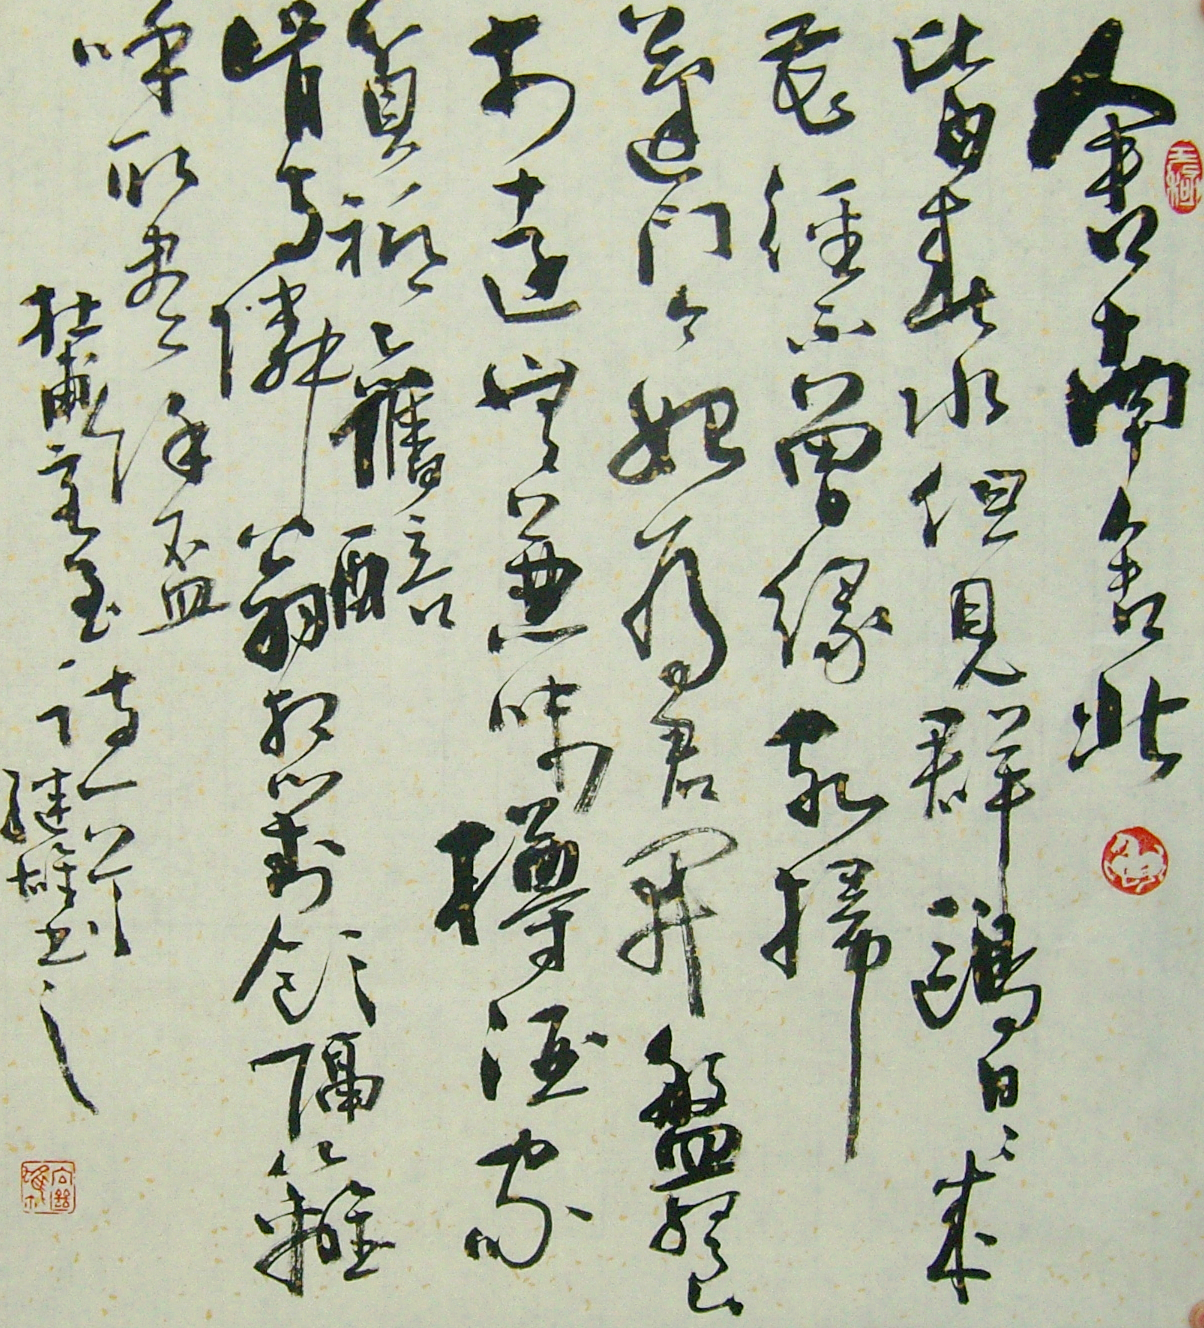 舍南舍北
皆春水但見群鷗日〻來
花徑不曾緣客掃
蓬門今始為君開盤飧
市遠無兼味樽酒家
貧祗舊醅
肯与隣翁相對飲隔籬
呼取尽余盃
杜甫客至詩一首
继雄书之